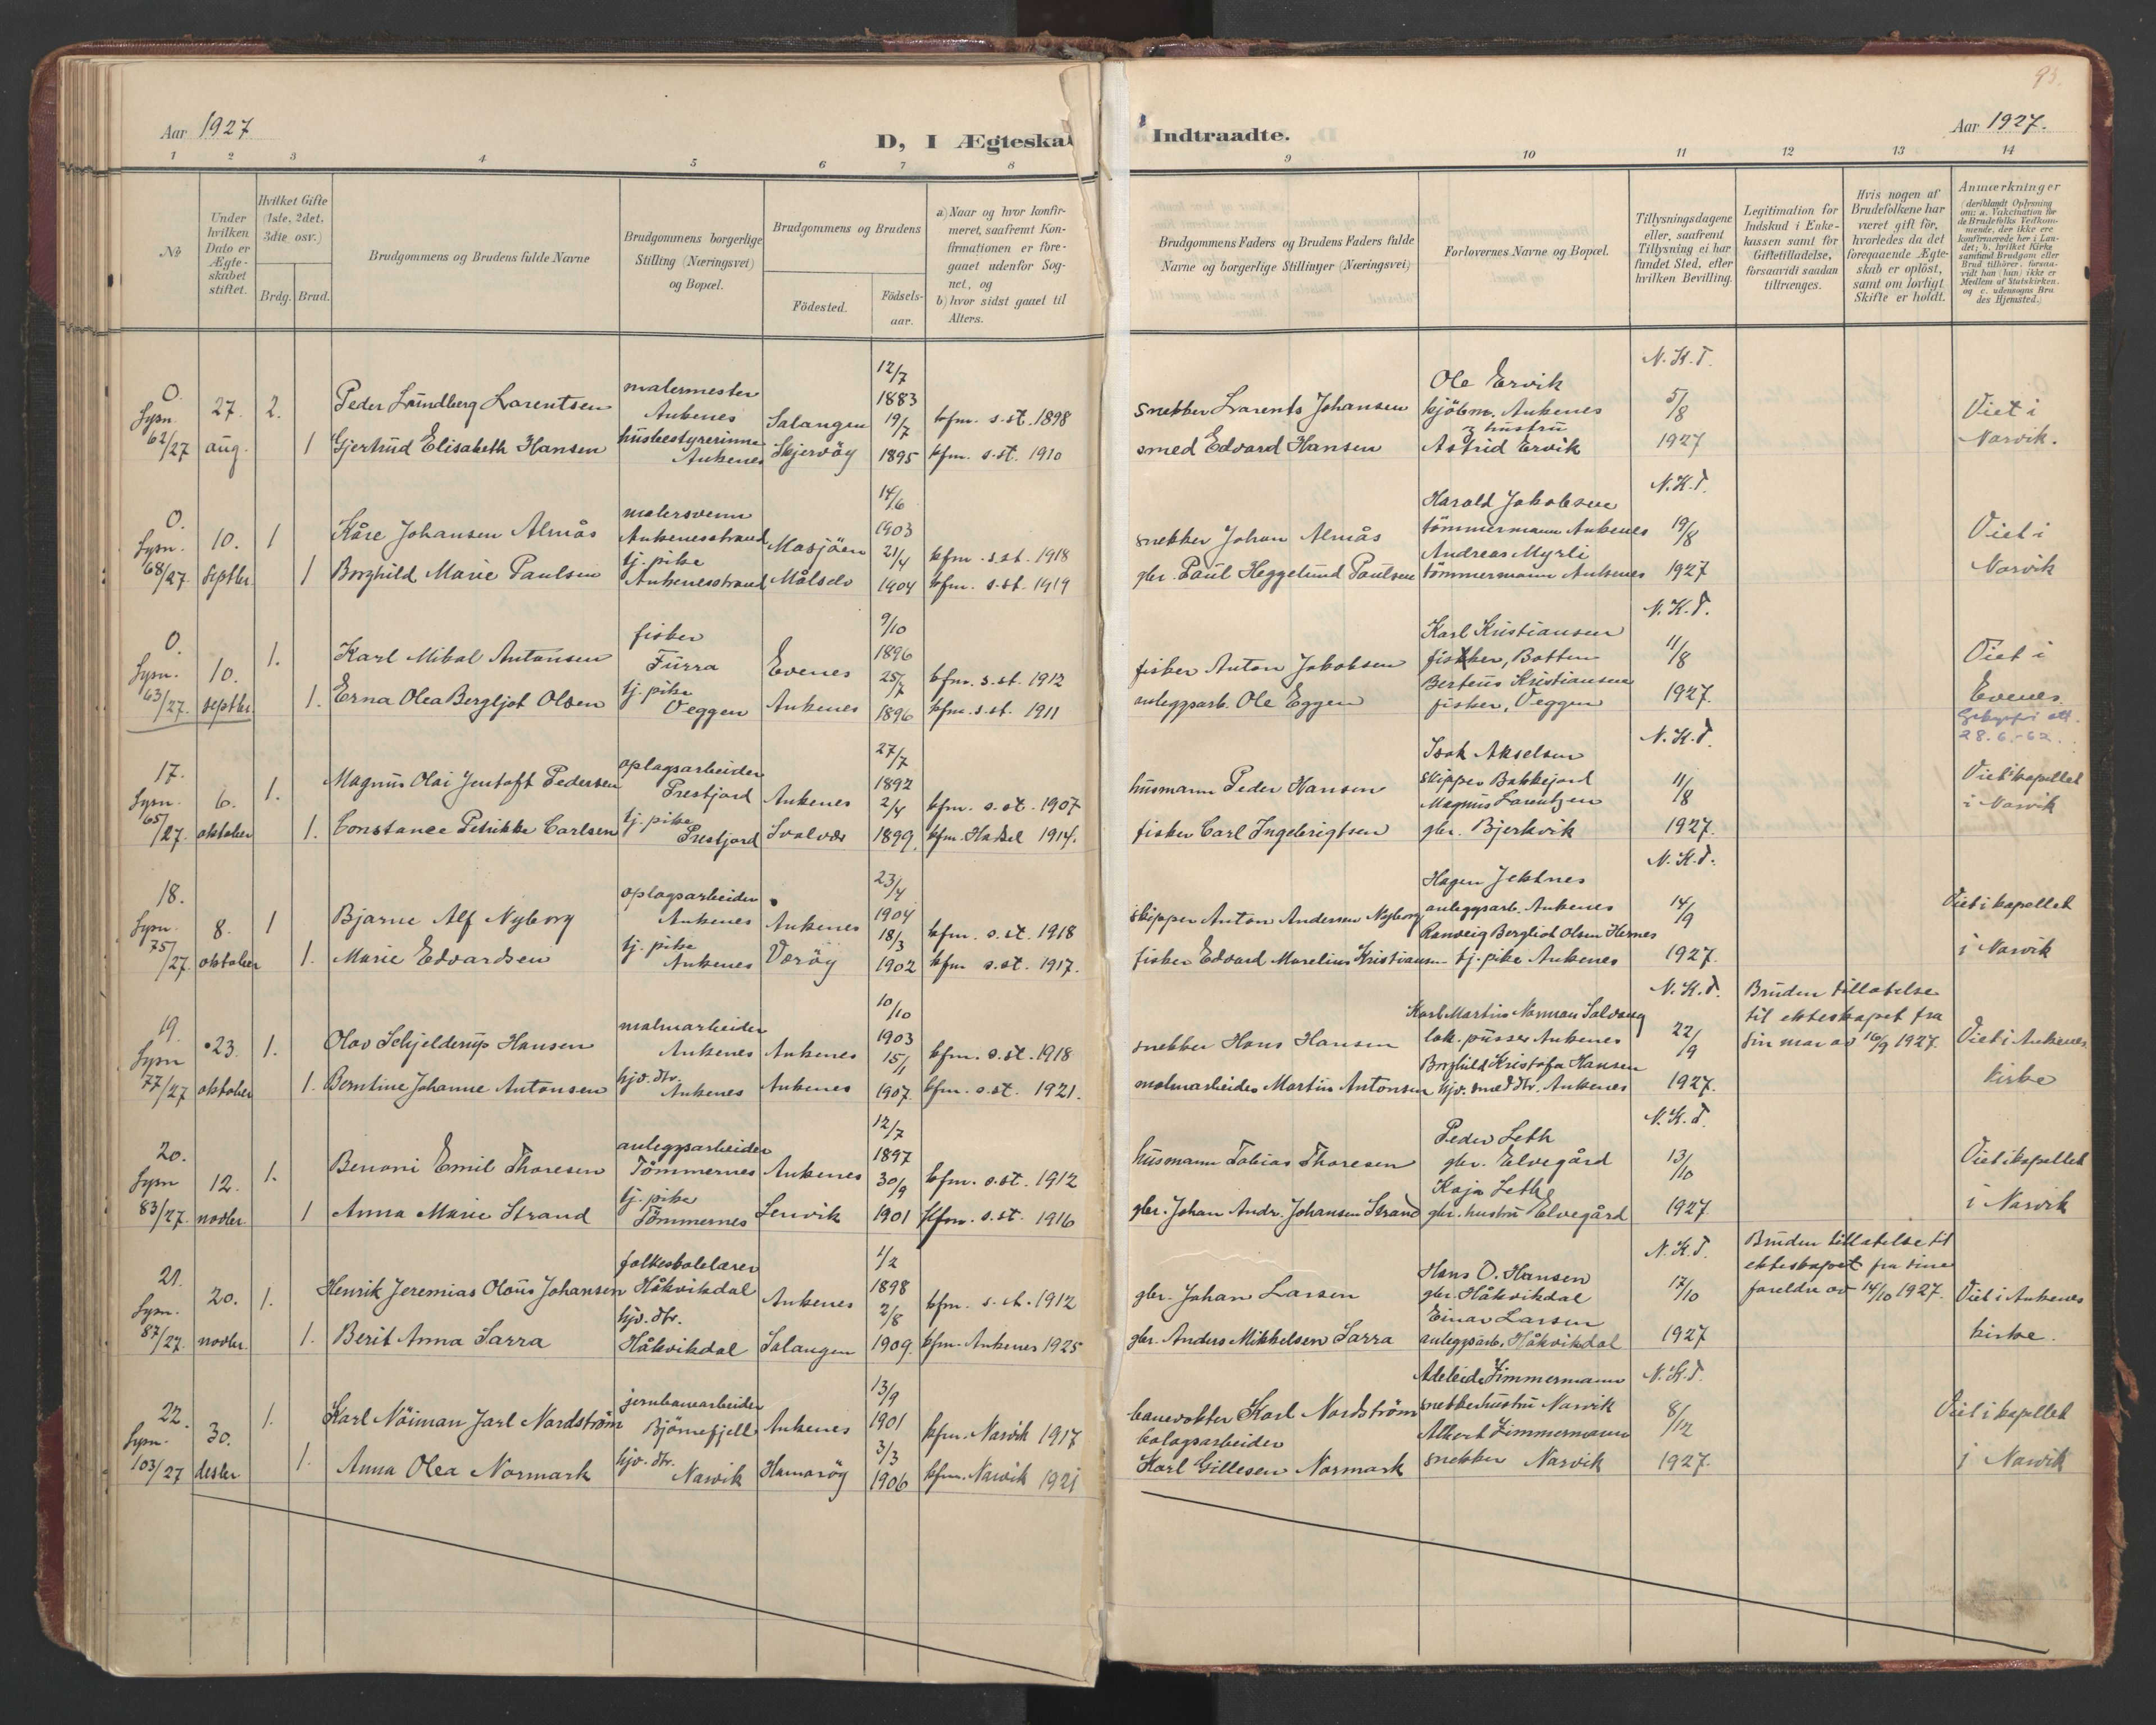 93.
Aar 1927
D, I Ægteska
Indtraadte.
Aar 1927.
1 2 3 4 5 6 7 8 9 10 11 12 13 14
№
Under hvilken Dato er Ægte-skabet stiftet.
Hvilket Gifte (1ste, 2det, 3die osv.)
Brdg. Brud.
Brudgommens og Brudens fulde Navne
Brudgommens borgerlige Stilling (Næringsvei) og Bopæl.
Brudgommens og Brudens
Födested.
Födsels-aar.
a) Naar og hvor konfir-meret, saafremt Kon-firmationen er fore-gaaet udenfor Sog-net, og
b) hvor sidst gaaet til Alters.
Brudgommens Faders og Brudens Faders fulde Navne og borgerlige Stillinger (Næringsvei)
Forlovernes Navne og Bopæl.
Tillysningsdagene eller, saafremt Tillysning ei har fundet Sted, efter hvilken Bevilling.
Legitimation for Indskud i Enke-kassen samt for Giftetilladelse, forsaavidt saadan tiltrænges.
Hvis nogen af Brudefolkene har været gift för, hvorledes da det foregaaende Ægte-skab er oplöst, samt om lovligt Skifte er holdt.
Anmærkninger (deriblandt Oplysning om: a. Vaksination for de Brudefolks Vedkom-mende, der ikke ere konfirmerede her i Lan-det; b. hvilket Kirke samfund Brudgom eller Brud tilhörer, forsaa-vidt han (hun) ikke er Medlem af Statskirken. og c. udensogns Bru des Hjemsted.)
O. Lysn. 62/27
27. aug.
2.
Peder Lundberg Larentsen
malermester Ankenes
Salangen
12/7 1883
kfm. s.st. 1898
snekker Larents Johansen
Ole Ervik kjöbm. Ankenes
N.K.T. 5/8 1927
Viet i Narvik.
1
Gjertrud Elisabeth Hansen
husbestyrerinne Ankenes
Skjervöy
19/7 1895
kfm. s.st. 1910
smed Edvard Hansen
& hustru Astrid Ervik
O. Lysn. 68/27.
10. septbr.
1
Kåre Johansen Almås
malersvenn Ankenesstrand
Mosjöen
14/6 1903
kfm. s.st. 1918
snekker Johan Almås
Harald Jakobsen tömmermann Ankenes
N.K.T. 19/8 1927
Viet i Narvik
1
Borghild Marie Paulsen
tj. pike Ankenesstrand
Målselv
21/4 1904
kfm. s.st. 1919
gbr. Paul Heggelund Paulsen
Andreas Myrli tömmermann Ankenes
O. Lysn. 63/27.
10. septbr.
1.
Karl Mikal Antonsen
fisker Furra
Evenes
9/10 1896
kfm. s.st. 1912
fisker Anton Jakobsen
Karl Kristiansen fisker, Botten
N.K.T. 11/8 1927.
Viet i Evenes.
28.6.-62.
1.
Erna Olea Bergljot Olsen
tj. pike Veggen
Ankenes
25/7 1896
kfm. s.st. 1911
anleggsarb. Ole Eggen
Berteus Kristiansen fisker, Veggen
17. Lysn. 65/27.
6. oktober
1.
Magnus Olai Jentoft Pedersen
oplagsarbeider Prestjord
Ankenes
27/7 1892
kfm. s.st. 1907
husmann Peder Hansen
Isak Akselsen skipper Bakkejord
N.K.T. 11/8 1927.
Viet i kapellet i Narvik
1.
Constance Petrikke Carlsen
tj. pike Prestjord
Svolvær
2/4 1899.
kfm. Hadsel 1914.
fisker Carl Ingebrigtsen
Magnus Larentzen gbr. Bjerkvik
18. Lysn. 75/27.
8. oktober
1
Bjarne Alf Nyborg
oplagsarbeider Ankenes
Ankenes
23/4 1904
kfm. s.st. 1918
skipper Anton Andersen Nyborg
Hagen Jektnes anleggsarb. Ankenes
N.K.T. 14/9 1927.
Viet i kapellet i Narvik
1.
Marie Edvardsen
tj. pike Ankenes
Væröy
18/3 1902
kfm s.st. 1917.
fisker Edvard Marelius Kristiansen
Ranveig Bergliot Olsen Hernes tj. pike Ankenes
19. Lysn 77/27
23. oktober
1.
Olav Schjelderup Hansen
malmarbeider Ankenes
Ankenes
10/10 1903
kfm. s.st. 1918
snekker Hans Hansen
Karl Martin Norman Salvang lok. pusser Ankenes
N.K.T. 22/9 1927.
Bruden tillatelse til ekteskapet fra sin mor av 16/9 1927.
Viet i Ankenes kirke
1.
Berntine Johanne Antonsen
hjv. dtr. Ankenes
Ankenes
15/1 1907.
kfm. s.st. 1921.
malmarbeider Martin Antonsen
Borghild Kristofa Hansen hjv. smed dtr. Ankenes
20. Lysn 83/27.
12. novbr.
1.
Benoni Emil Thoresen
anleggsarbeider Tömmernes
Ankenes
12/7 1897
kfm. s.st. 1912
husmann Tobias Thoresen
Peder Leth gbr. Elvegård
N.K.T. 13/10 1927.
Viet i kapellet i Narvik
1
Anna Marie Strand
tj. pike Tömmernes
Lenvik
30/9 1901
kfm. s.st. 1916
gbr. Johan Andr. Johansen Strand
Kaja Leth gbr. hustru Elvegård
21. Lysn. 87/27.
20. novbr.
1.
Henrik Jeremias Olaus Johansen
folkeskolelærer Håkvikdal
Ankenes
1/2 1898
kfm. s.st. 1912
gbr. Johan Larsen
Hans O. Hansen gbr. Håkvikdal
N.K.T. 17/10 1927
Bruden tillatelse til ekteskapet fra sine foreldre av 14/10 1927.
Viet i Ankenes kirke.
1.
Berit Anna Sarra
hjv. dtr. Håkvikdal
Salangen
2/8 1909.
kfm. Ankenes 1925
gbr. Anders Mikkelsen Sarra
Einar Larsen anleggsarb. Håkvikdal
22. Lysn. 103/27
30. desbr
1.
Karl Nöiman Jarl Nordström
jernbanearbeider Björnefjell
Ankenes
13/9 1901
kfm. Narvik 1917
banevokter Karl Nordström
Adeleide Zimmermann snekkerhustru Narvik
N.K.T. 8/12 1927.
Viet i kapellet i Narvik
1.
Anna Olea Normark
hjv. dtr. Narvik
Hamaröy
3/3 1906
kfm. Narvik 1921
bolagsarbeider Karl Gillesen Normark
Albert Zimmermann snekker Narvik